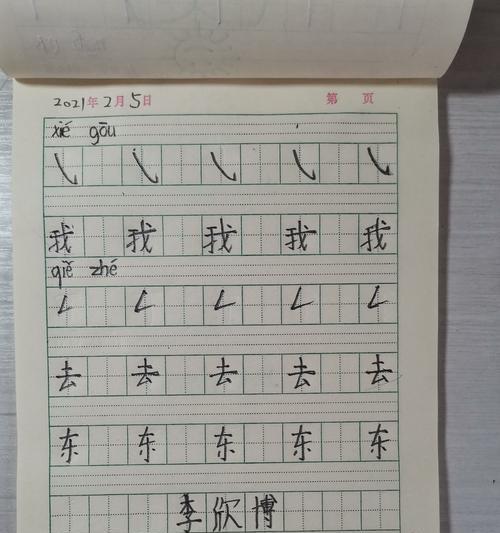 2021年2月5日 第 页
xié gōu
㇂ ㇂ ㇂ ㇂ ㇂
我 我 我 我 我
piě zhé
𠃋 𠃋 𠃋 𠃋 𠃋
去 去 去 去 去
东 东 东 东 东
李欣博